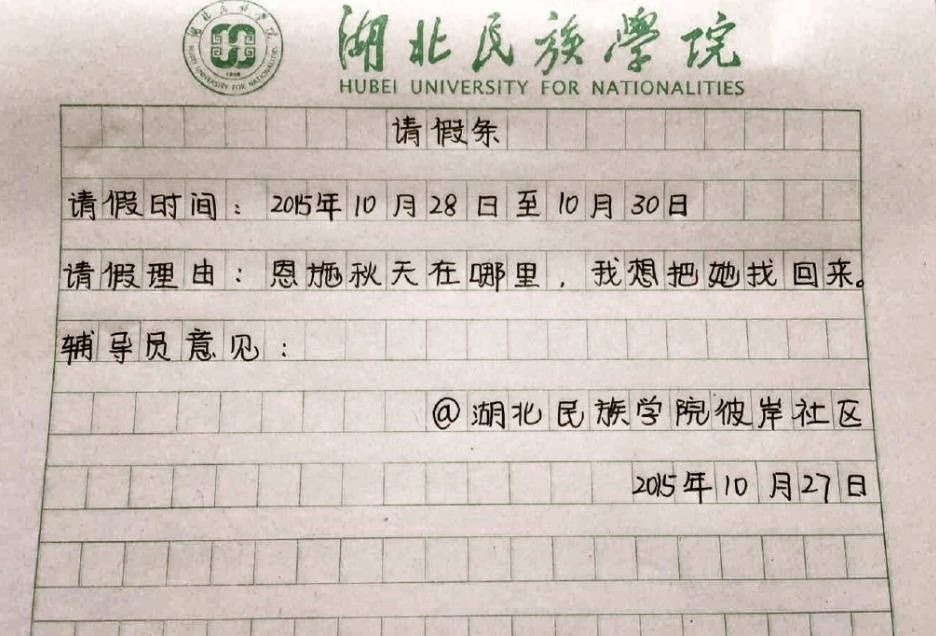 湖北民族學院
HUBEI UNIVERSITY FOR NATIONALITIES
请假条
请假时间：2015年10月28日至10月30日
请假理由：恩施秋天在哪里，我想把她找回来。
辅导员意见：
@湖北民族学院彼岸社区
2015年10月27日